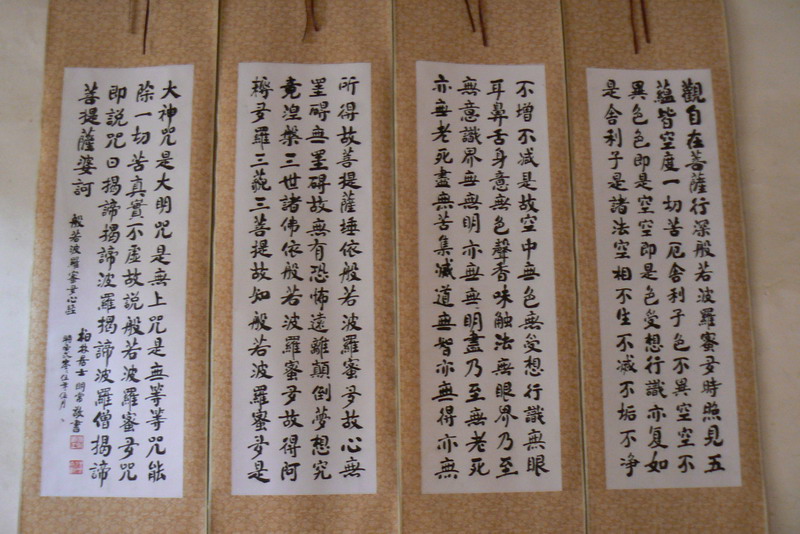 觀自在菩薩行深般若波羅蜜多時照見五
蘊皆空度一切苦厄舍利子色不異空空不
異色色即是空空即是色受想行識亦复如
是舍利子是諸法空相不生不滅不垢不净
不增不减是故空中無色無受想行識無眼
耳鼻舌身意無色聲香味触法無眼界乃至
無意識界無無明亦無無明盡乃至無老死
亦無老死盡無苦集滅道無智亦無得亦無
所得故菩提薩埵依般若波羅蜜多故心無
罣碍無罣碍故無有恐怖遠離顛倒夢想究
竟涅槃三世諸佛依般若波羅蜜多故得阿
耨多羅三藐三菩提故知般若波羅蜜多是
大神咒是大明咒是無上咒是無等等咒能
除一切苦真實不虛故説般若波羅蜜多咒
即説咒曰揭諦揭諦波羅揭諦波羅僧揭諦
菩提薩婆訶
般若波羅蜜多心経
柏林居士 明常敬書
零伍年伍月